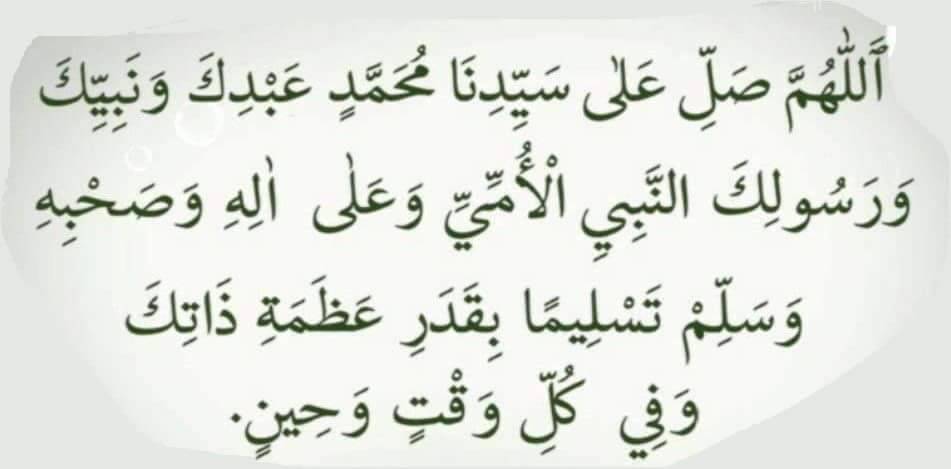 اَللّٰهُمَّ صَلِّ عَلٰى سَيِّدِنَا مُحَمَّدٍ عَبْدِكَ وَنَبِيِّكَ
وَرَسُولِكَ النَّبِيِ الْأُمِّيِّ وَعَلٰى اٰلِهِ وَصَحْبِهِ
وَسَلِّمْ تَسْلِيمًا بِقَدَرِ عَظَمَةِ ذَاتِكَ
وَفِي كُلِّ وَقْتٍ وَحِينٍ.